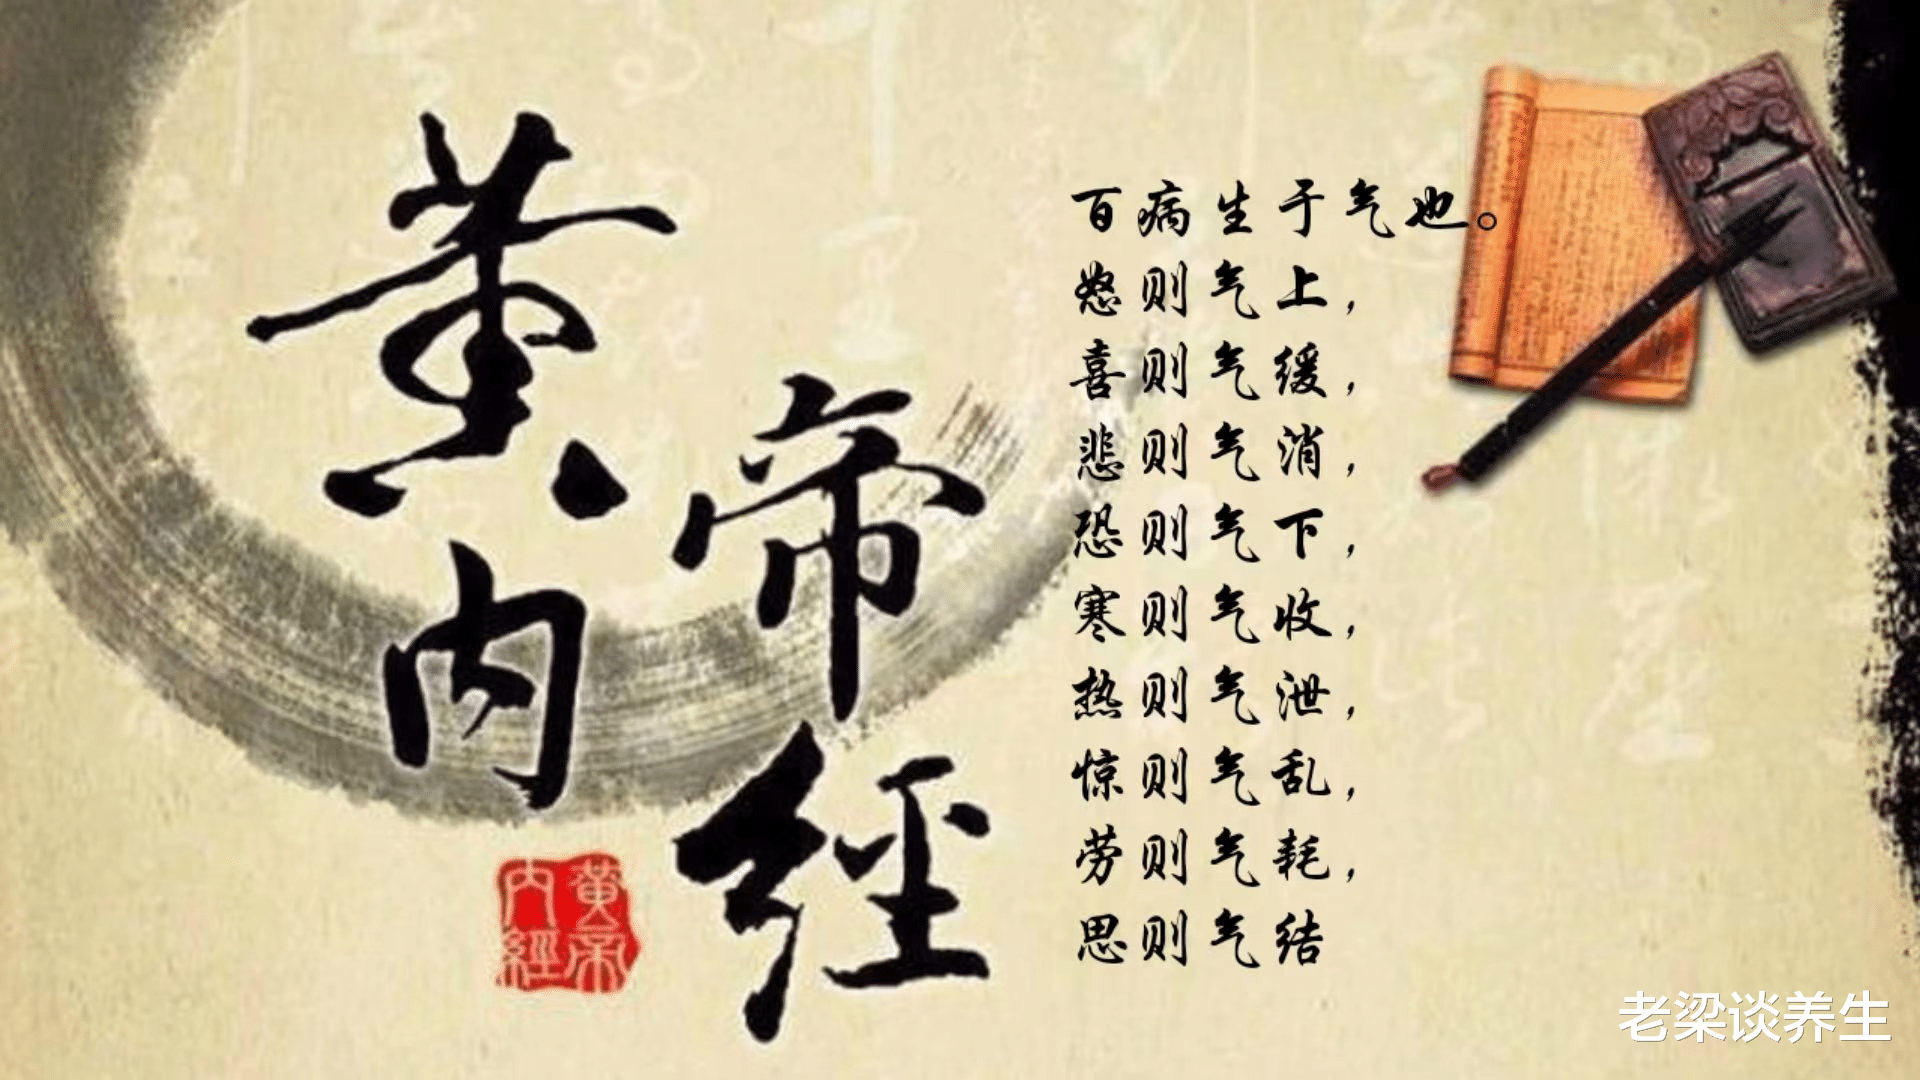 黄帝内經
百病生于气也。
怒则气上，
喜则气缓，
悲则气消，
恐则气下，
寒则气收，
热则气泄，
惊则气乱，
劳则气耗，
思则气结
黃帝
内經
老梁谈养生